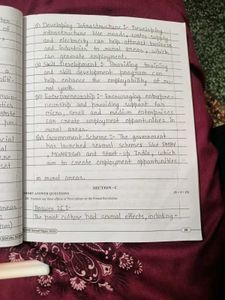 (i) Developing Infrastructure :- Developing
infrastructure like roads, water supply
and electricity can help attract business
and industries to rural areas, which
can generate employment.
(ii) Skill Development :- Providing training
and skill development program can
help enhance the employability of
rural youth.
(iii) Entrepreneurship :- Encouraging entrepre-
neurship and providing support for
micro, small and medium enterprises
can create employment opportunities in
rural areas.
(iv) Government Scheme :- The government
has launched several schemes like PMRY,
MGNREGA and Start-up India, which
aim to create employment opportunities
in rural areas.
SECTION - C
SHORT ANSWER QUESTIONS
Answer
The print culture had several effects, including -